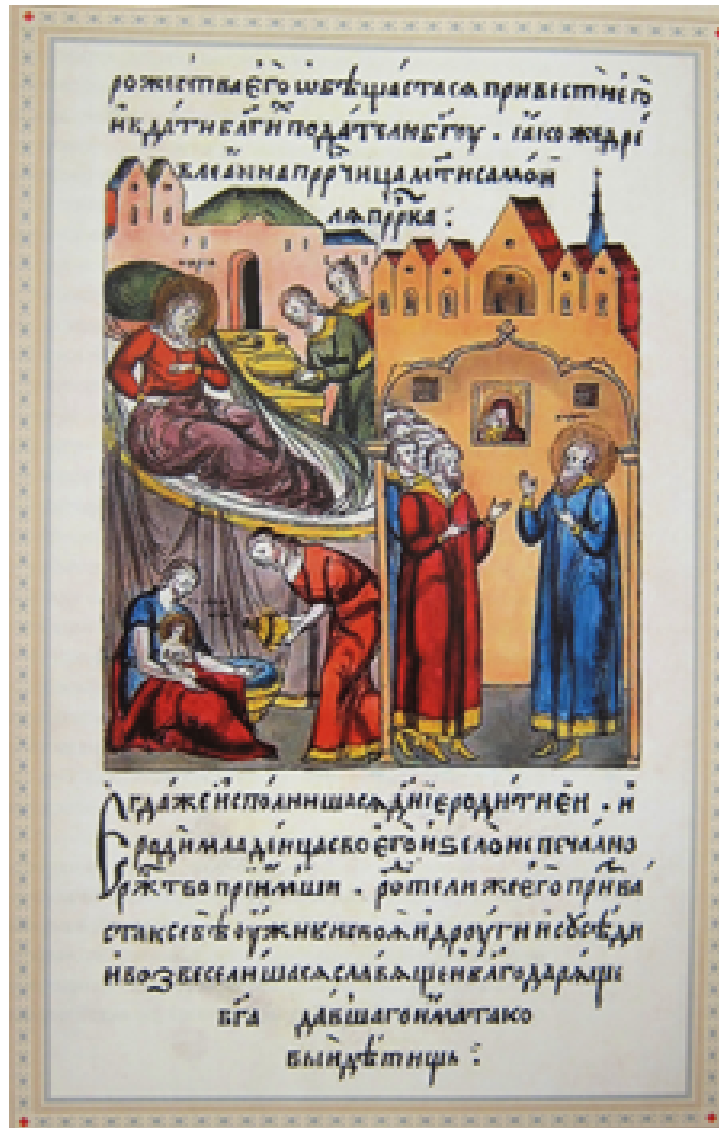 рожествⷶ е҆го̀ ѡ҆бѣща́стасѧ привестѝ е҆го̀
и҆ вда́ти бл҃ги́и пода́телю бг҃оу . ꙗ҆́коже дре́
влеа҆́нна прⷪ҇рчица мт҃и само́и
лѧ прⷪ҇рка :
Е҆гда́же и҆спо́лнишасѧ дн҃їе роди́ти е҆́и . и҆
родѝ младе́нца своего̀ и҆ ѕело̀ непеча́лно
ржⷭ҇тво̀ прїи́мши . роди́телиже е҆го̀ призва́
ста к себѣ̀ оу҆́жики своѧ̀ и҆ дро́уги и҆ сꙋсѣ́ди
и҆ возвесели́шасѧ сла́вѧще и҆ бл҃годарѧ́ще
бг҃а да́вшаго и҆́ма тако
вы́и дѣ́тищь :